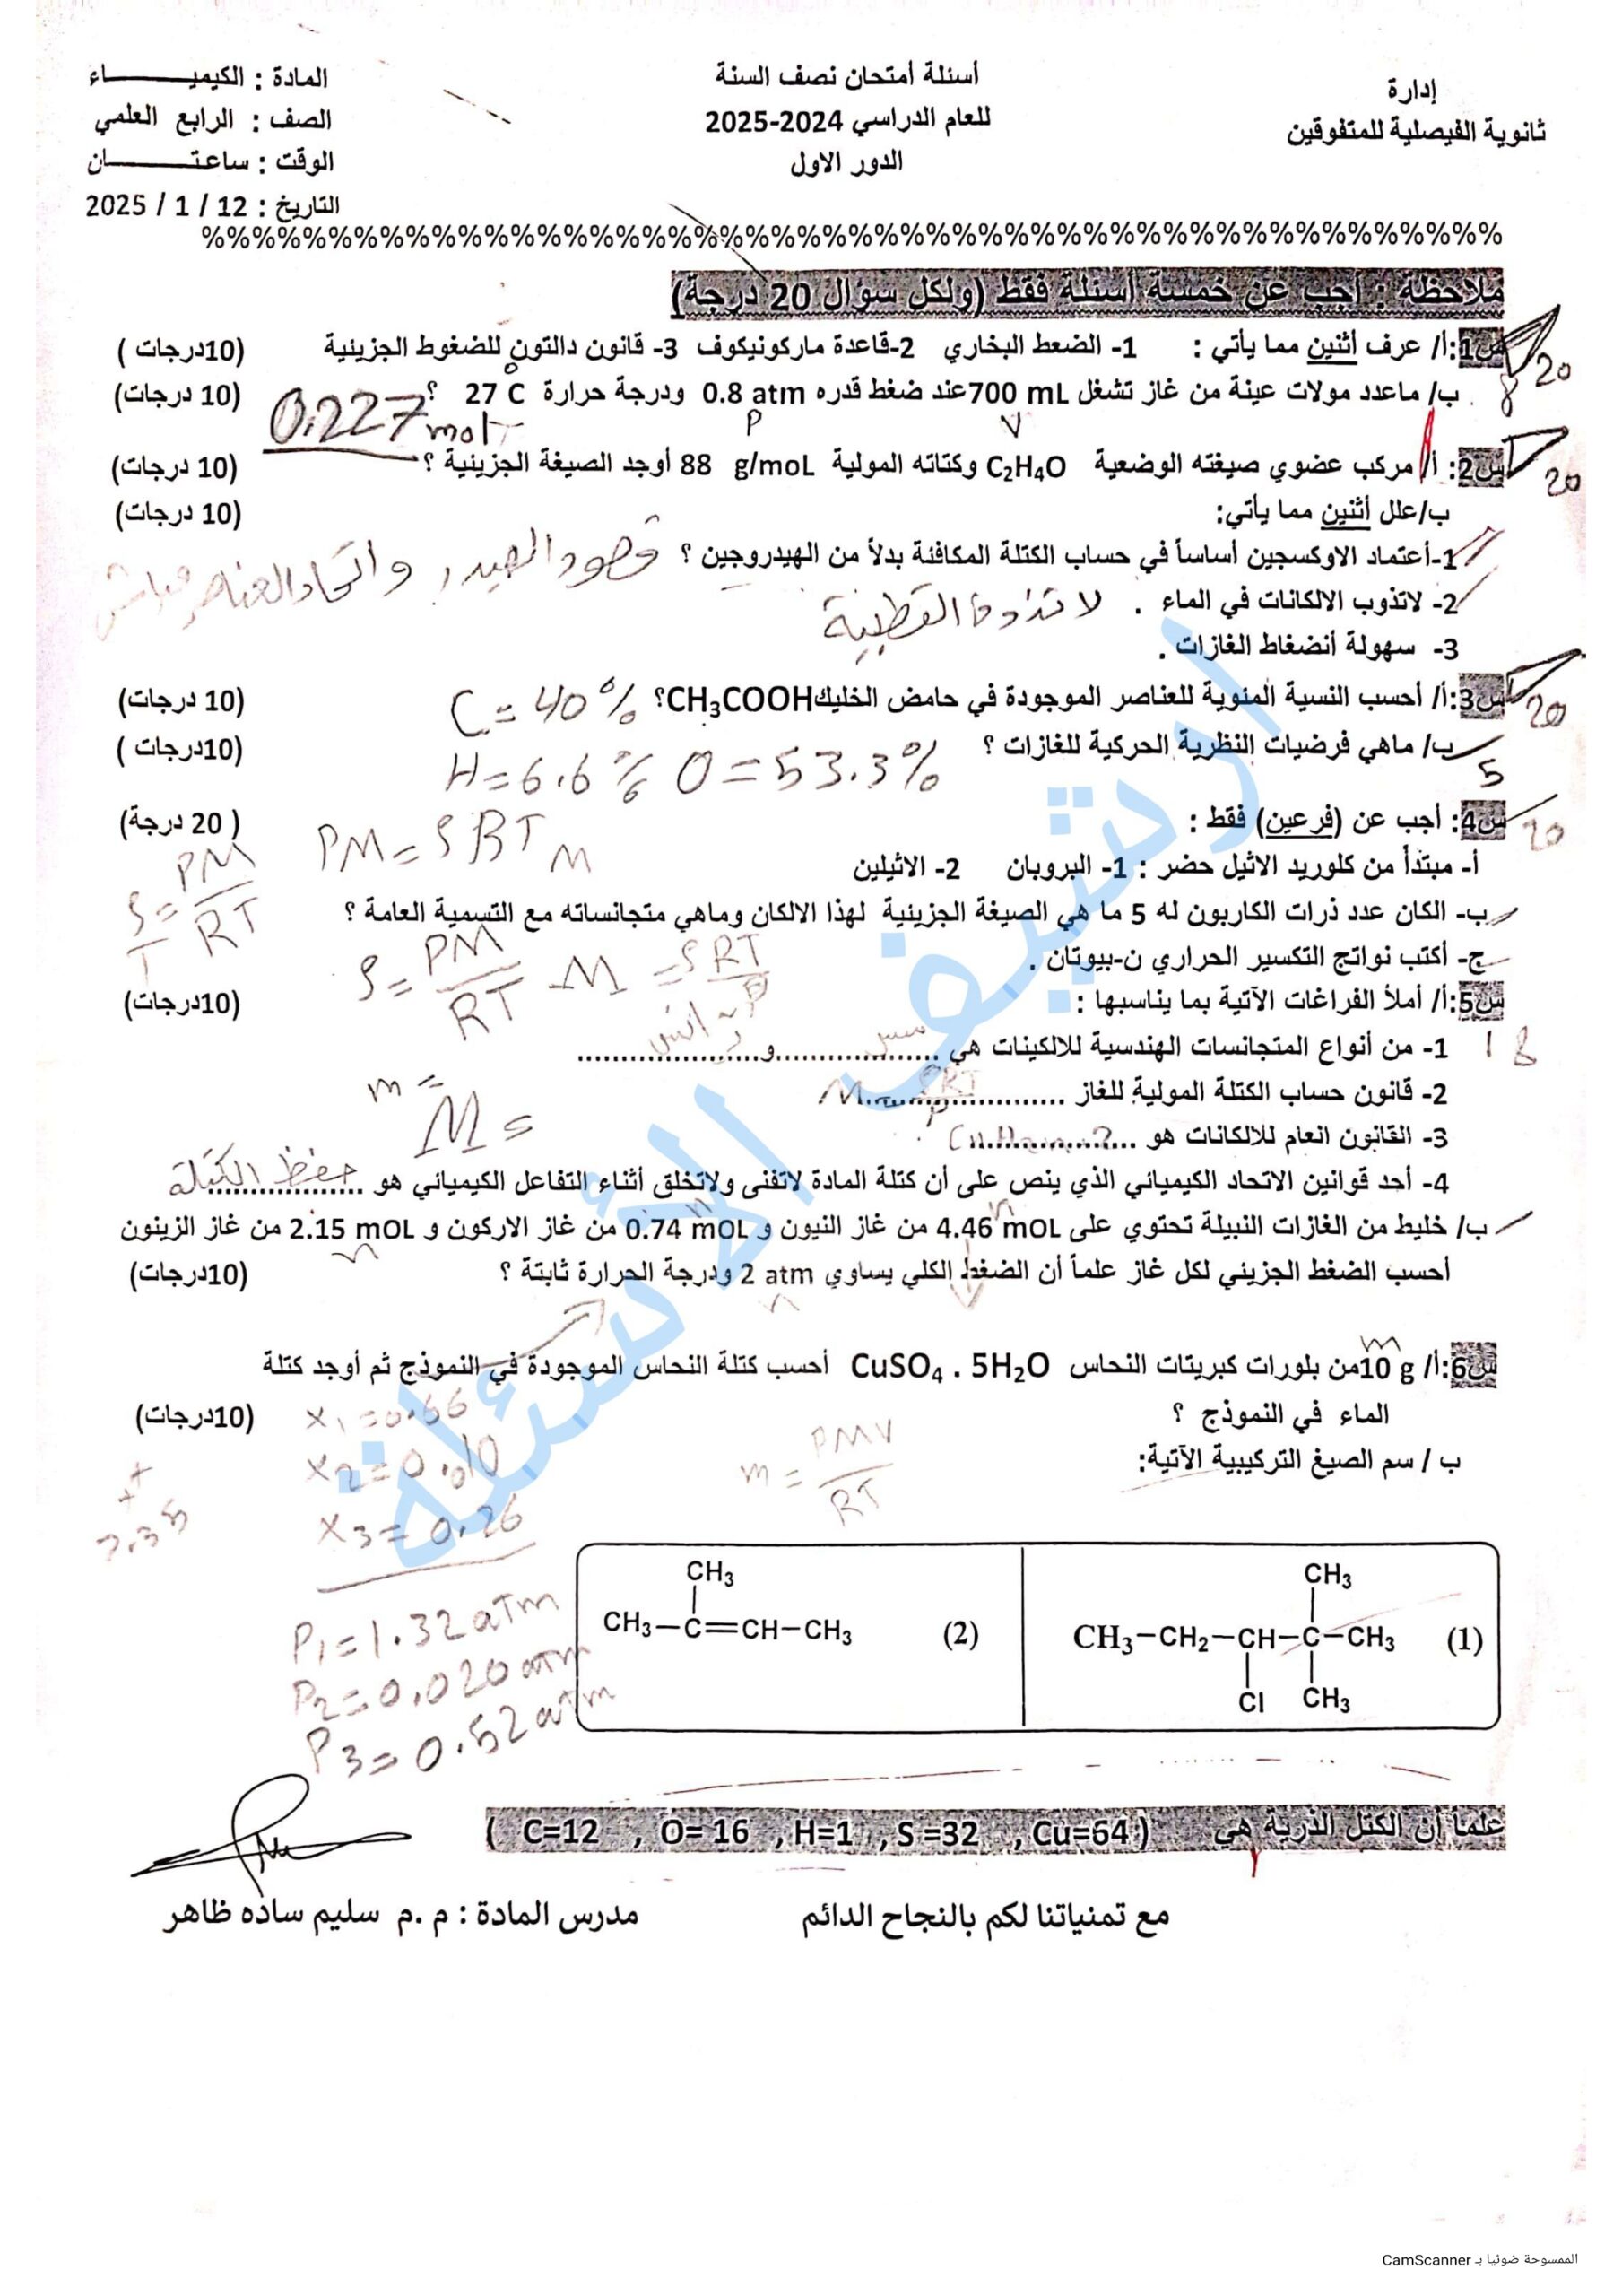 إدارة
ثانوية الفيصلية للمتفوقين
أسئلة أمتحان نصف السنة
للعام الدراسي 2024-2025
الدور الاول
المادة : الكيميـــــاء
الصف : الرابع العلمي
الوقت : ساعتـــــان
التاريخ : 12 / 1 / 2025
%%%%%%%%%%%%%%%%%%%%%%%%%%%%%%%%%%%%%%%%%%%%%%%%%%
ملاحظة : أجب عن خمسة أسئلة فقط (ولكل سؤال 20 درجة)
س1:أ/ عرف أثنين مما يأتي : 1- الضعط البخاري 2-قاعدة ماركونيكوف 3- قانون دالتون للضغوط الجزيئية (10درجات )
20
ب/ ماعدد مولات عينة من غاز تشغل 700 mL عند ضغط قدره 0.8 atm ودرجة حرارة 27 C° ؟ (10 درجات)
8
P V
0.227 mol
س2: أ/ مركب عضوي صيغته الوضعية C₂H₄O وكتاته المولية 88 g/moL أوجد الصيغة الجزيئية ؟ (10 درجات)
20
ب/علل أثنين مما يأتي: (10 درجات)
1-أعتماد الاوكسجين أساساً في حساب الكتلة المكافئة بدلاً من الهيدروجين ؟
2- لاتذوب الالكانات في الماء .
3- سهولة أنضغاط الغازات .
س3:أ/ أحسب النسبة المئوية للعناصر الموجودة في حامض الخليك CH₃COOH؟ (10 درجات)
20
C = 40%
ب/ ماهي فرضيات النظرية الحركية للغازات ؟ (10درجات )
5
H = 6.6% O = 53.3%
س4: أجب عن (فرعين) فقط : (20 درجة)
20
PM = ρRT M
أ- مبتدأ من كلوريد الاثيل حضر : 1- البروبان 2- الاثيلين
ρ = PM/RT
ب- الكان عدد ذرات الكاربون له 5 ما هي الصيغة الجزيئية لهذا الالكان وماهي متجانساته مع التسمية العامة ؟
ج- أكتب نواتج التكسير الحراري ن-بيوتان .
ρ = PM/RT M = ρRT/P
س5:أ/ أملأ الفراغات الآتية بما يناسبها : (10درجات)
18
1- من أنواع المتجانسات الهندسية للالكينات هي .......سس.......و.......ترانس.......
2- قانون حساب الكتلة المولية للغاز ....................
M ρRT/P
m = M =
3- القانون العام للالكانات هو ....................
4- أحد قوانين الاتحاد الكيميائي الذي ينص على أن كتلة المادة لاتفنى ولاتخلق أثناء التفاعل الكيميائي هو ..........حفظ الكتلة..........
ب/ خليط من الغازات النبيلة تحتوي على 4.46 moL من غاز النيون و 0.74 moL من غاز الاركون و 2.15 moL من غاز الزينون
أحسب الضغط الجزيئي لكل غاز علماً أن الضغط الكلي يساوي 2 atm ودرجة الحرارة ثابتة ؟ (10درجات)
س6:أ/ 10 g من بلورات كبريتات النحاس CuSO₄ . 5H₂O أحسب كتلة النحاس الموجودة في النموذج ثم أوجد كتلة
m
الماء في النموذج ؟ (10درجات)
ب / سم الصيغ التركيبية الآتية:
m = PMV/RT
x₁ = 0.66
x₂ = 0.010
x₃ = 0.26
7.35
P₁ = 1.32 atm
P₂ = 0.020 atm
P₃ = 0.52 atm
CH₃
CH₃−CH₂−CH−C−CH₃ (1)
Cl CH₃
CH₃
CH₃−C=CH−CH₃ (2)
علماً أن الكتل الذرية هي ( C=12 , O= 16 , H=1 , S =32 , Cu=64 )
مع تمنياتنا لكم بالنجاح الدائم
مدرس المادة : م .م سليم ساده ظاهر
ارشيف الأسئلة
الممسوحة ضوئيا بـ CamScanner